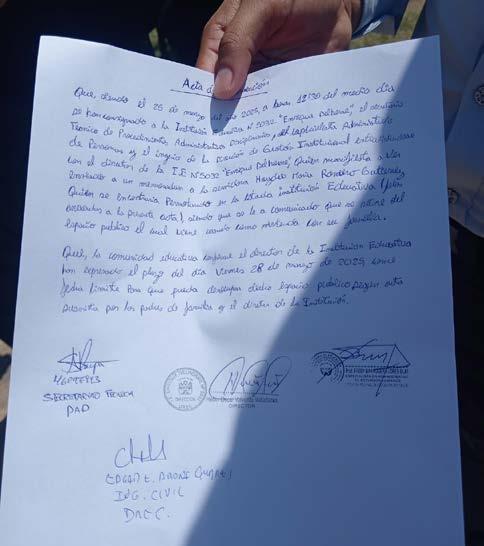 Acta de
Que, siendo el 26 de marzo del año 2025, a horas 12:30 del medio día
se han constituido a la Institución N° 5032 "Enrique Delhorme", el secretario
Técnico de Procedimiento Administrativo Disciplinario, el especialista Administrativo
de Personas y el ingeniero de la Dirección de Gestión Institucional
con el director de la I.E N°5032 "Enrique Delhorme", Quien manifiesta a ver
enviado a un memorandum a la servidora María Romero Gutierrez,
Quien se encuentra en la citada institución Educativa
a la presente acta), siendo que se le a comunicado que se retire del
espacio publico el cual viene usando como vivienda con su familia.
Que, la comunidad educativa conforme el director de la Institución Educativa
han expresado el plazo del día Viernes 28 de marzo de 2025 como
fecha limite Para que pueda desocupar dicho espacio público según acta
suscrita por los padres de familia y el director de la Institución.
SECRETARIADO TÉCNICA
PAD
DIRECTOR
EDGAR E.
ING. CIVIL
DREC.